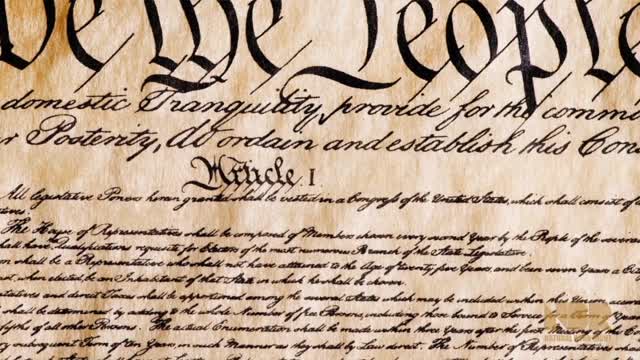 We the People
domestic Tranquility, provide for the comm
r Posterity, do ordain and establish this Cons
Article. I
All legislative Powers herein granted shall be vested in a Congress of the United States, which shall consist of a
tives.
The House of Representatives shall be composed of Members chosen every second Year by the People of the several
shall have Qualifications requisite for Electors of the most numerous Branch of the State Legislature.
on shall be a Representative who shall not have attained to the Age of twenty five Years, and been seven Years a C
not when elected be an Inhabitant of that State in which he shall be chosen.
tatives and direct Taxes shall be apportioned among the several States which may be included within this Union, accor
hall be determined by adding to the whole Number of free Persons, including those bound to Service for a Term of Years
fths of all other Persons. The actual Enumeration shall be made within three Years after the first Meeting of the Con
ry subsequent Term of ten Years, in such Manner as they shall by Law direct. The Number of